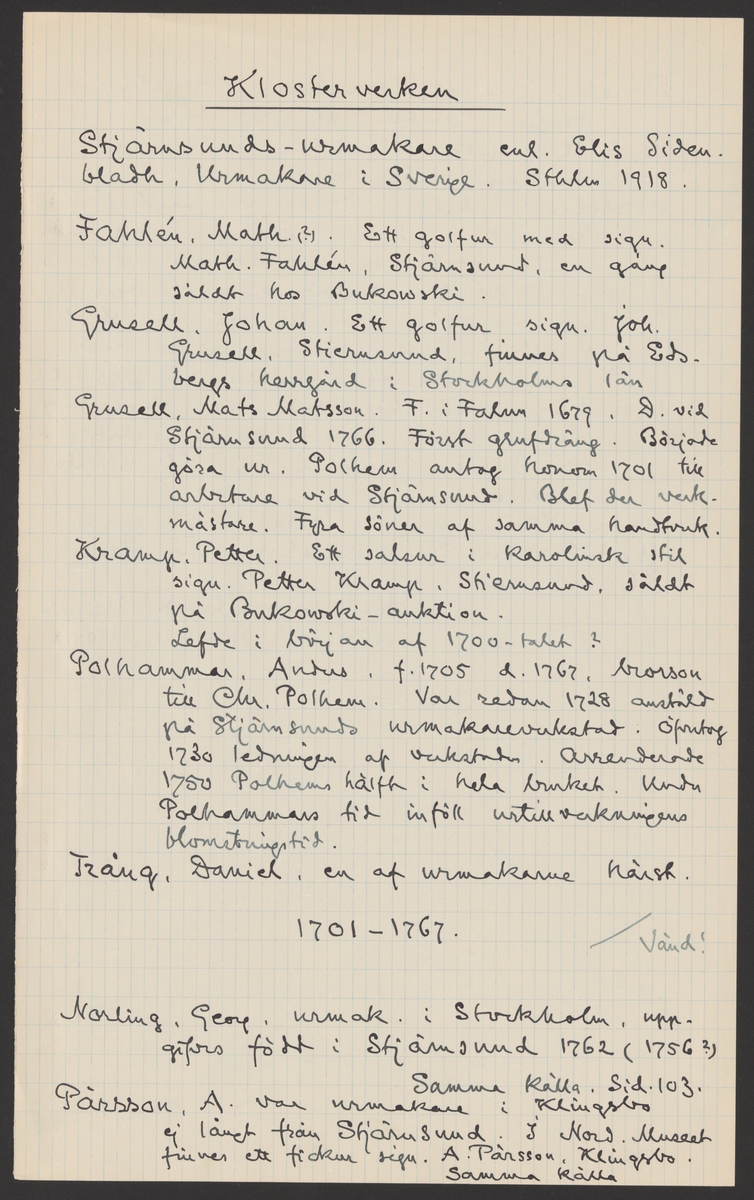 Klosterverken
Stjärnsunds-urmakare enl. Elis Siden-
bladh, Urmakare i Sverige. Sthlm 1918.
Fahlén, Math.(?). Ett golfur med sign.
Math. Fahlén, Stjärnsund, en gång
såldt hos Bukowski.
Grusell, Johan. Ett golfur sign. Joh.
Grusell, Stiernsund, finnes på Eds-
bergs herrgård i Stockholms län
Grusell, Mats Matsson. F. i Falun 1679. D. vid
Stjärnsund 1766. Först grufdräng. Började
göra ur. Polhem antog honom 1701 till
arbetare vid Stjärnsund. Blef der verk-
mästare. Fyra söner af samma handtverk.
Kramp, Petter. Ett salsur i karolinsk stil
sign. Petter Kramp, Stiernsund, såldt
på Bukowski-auktion.
Lefde i början af 1700-talet?
Polhammar, Anders, f. 1705 d. 1767, brorson
till Chr. Polhem. Var redan 1728 anstäld
på Stjärnsunds urmakareverkstad. Öfvertog
1730 ledningen af verkstaden. Arrenderade
1750 Polhems hälft i hela bruket. Under
Polhammars tid inföll urtillverkningens
blomstringstid.
Trång, Daniel, en af urmakarne härst.
1701-1767.
Vänd!
Norling, Georg, urmak. i Stockholm, upp-
gifves född i Stjärnsund 1762 (1756?)
Samma källa. Sid. 103.
Pärsson, A. var urmakare i Klingsbo
ej långt från Stjärnsund. I Nord. Museet
finnes ett fickur sign. A. Pärsson, Klingsbo.
Samma källa